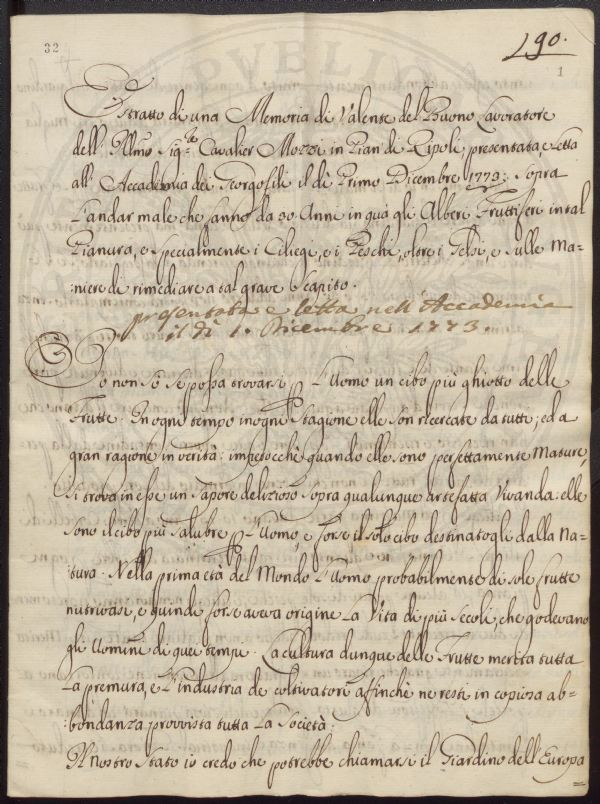 32
190.
1
Estratto di una Memoria di Valente del Buono Lavoratore
dell' Illmo Sig.re Cavalier Mozzi in Pian di Ripoli; presentata, e Letta
all' Accademia dei Georgofili il dì Primo Dicembre 1773: Sopra
L'andar male che fanno da 30 Anni in quà gli Alberi Fruttiferi in tal
Pianura, e Specialmente i Ciliegi, e i Peschi, oltre i Gelsi, e sulle Ma=
:niere di rimediare a tal grave Scapito.
presentata e letta nell'Accademia
il dì 1. Dicembre 1773.
Io non sò se possa trovarsi p L'Uomo un cibo più ghiotto delle
Frutte. In ogni tempo in ogni Stagione elle son ricercate da tutti; ed a
gran ragione in verità: imperocchè quando elle sono perfettamente Mature,
si trova in esse un sapore delizioso sopra qualunque artefatta Vivanda: elle
sono il cibo più salubre p L'Uomo, e forse il solo cibo destinatogli dalla Na=
:tura. Nella prima età del Mondo L'Uomo probabilmente di sole frutte
nutrivasi, e quindi forse aveva origine La Vita di più Secoli, che godevano
gli Uomini di quei tempi. La cultura dunque delle Frutte merita tutta
La premura, e L'industria de coltivatori affinchè ne resti in copiosa ab=
:bondanza provvista tutta La Società.
Il nostro Stato io credo che potrebbe chiamarsi il Giardino dell'Europa
PVBLIC